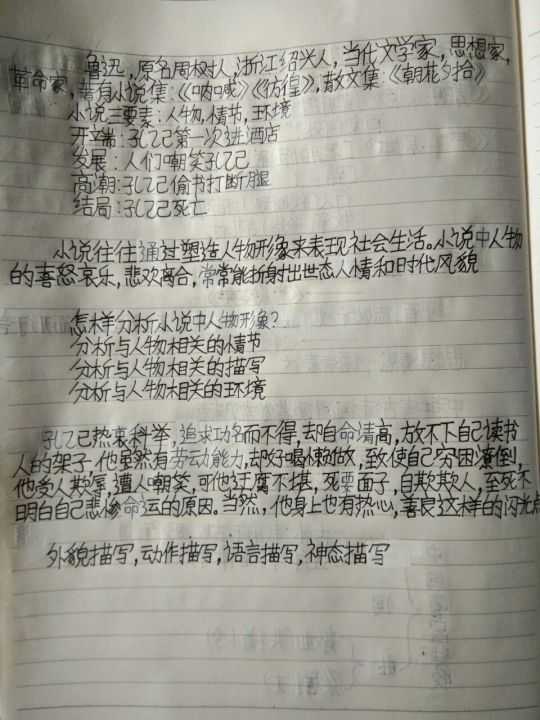 鲁迅，原名周树人，浙江绍兴人，当代文学家，思想家，
革命家，著有小说集：《呐喊》《彷徨》，散文集：《朝花夕拾》
小说三要素：人物，情节，环境
开端：孔乙己第一次进酒店
发展：人们嘲笑孔乙己
高潮：孔乙己偷书打断腿
结局：孔乙己死亡
小说往往通过塑造人物形象来表现社会生活。小说中人物
的喜怒哀乐，悲欢离合，常常能折射出世态人情和时代风貌
怎样分析小说中人物形象？
分析与人物相关的情节
分析与人物相关的描写
分析与人物相关的环境
孔乙己热衷科举，追求功名而不得，却自命清高，放不下自己读书
人的架子。他虽然有劳动能力，却好喝懒做，致使自己穷困潦倒，
他受人欺辱，遭人嘲笑，可他迂腐不堪，死要面子，自欺欺人，至死不
明白自己悲惨命运的原因。当然，他身上也有热心，善良这样的闪光点
外貌描写，动作描写，语言描写，神态描写